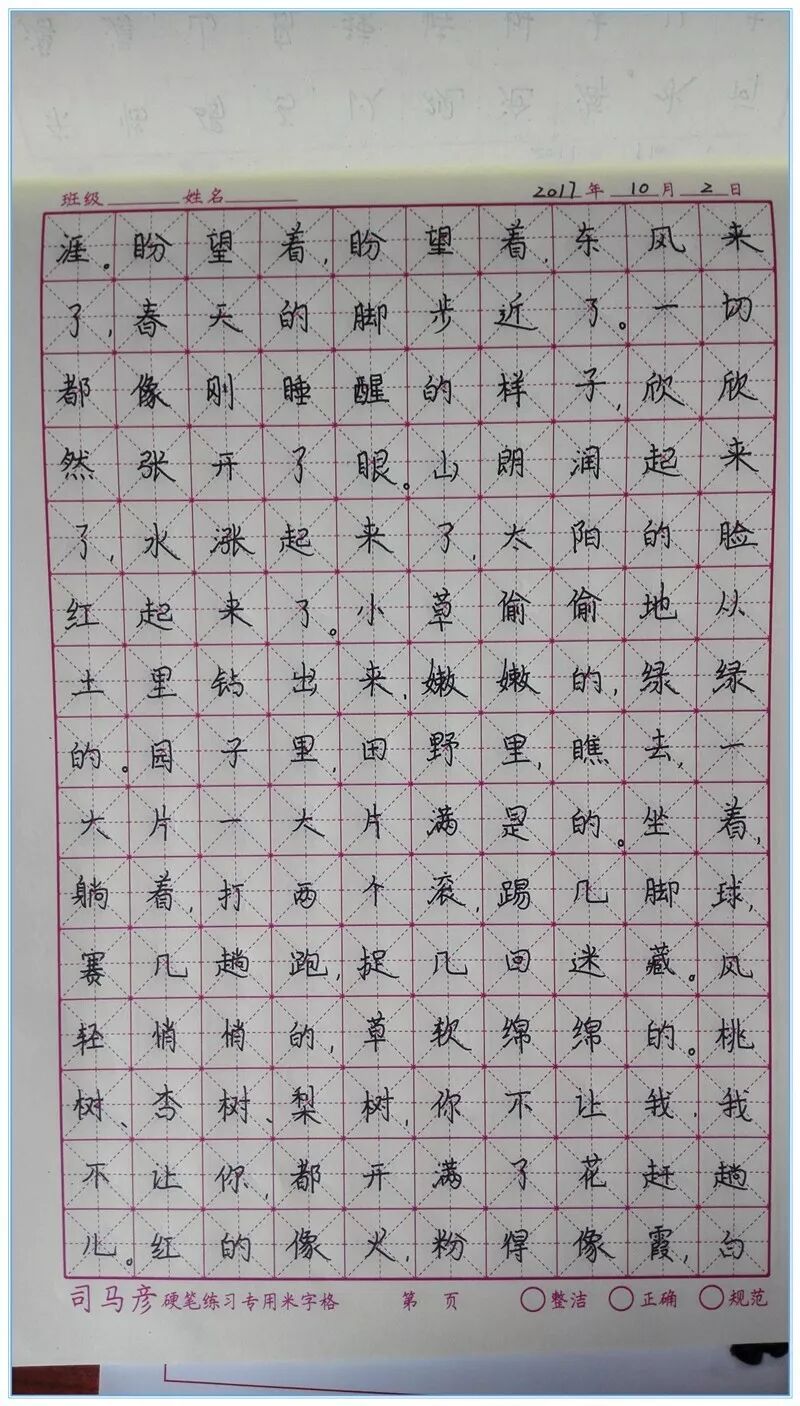 班级 姓名 2017年 10月 2日
涯。盼望着,盼望着,东风来
了,春天的脚步近了。一切
都像刚睡醒的样子,欣欣
然张开了眼。山朗润起来
了,水涨起来了,太阳的脸
红起来了。小草偷偷地从
土里钻出来,嫩嫩的,绿绿
的。园子里,田野里,瞧去,一
大片一大片满是的。坐着,
躺着,打两个滚,踢几脚球,
赛几趟跑,捉几回迷藏。风
轻悄悄的,草软绵绵的。桃
树、杏树、梨树,你不让我,我
不让你,都开满了花赶趟
儿。红的像火,粉得像霞,白
司马彦硬笔练习专用米字格 第 页 整洁 正确 规范